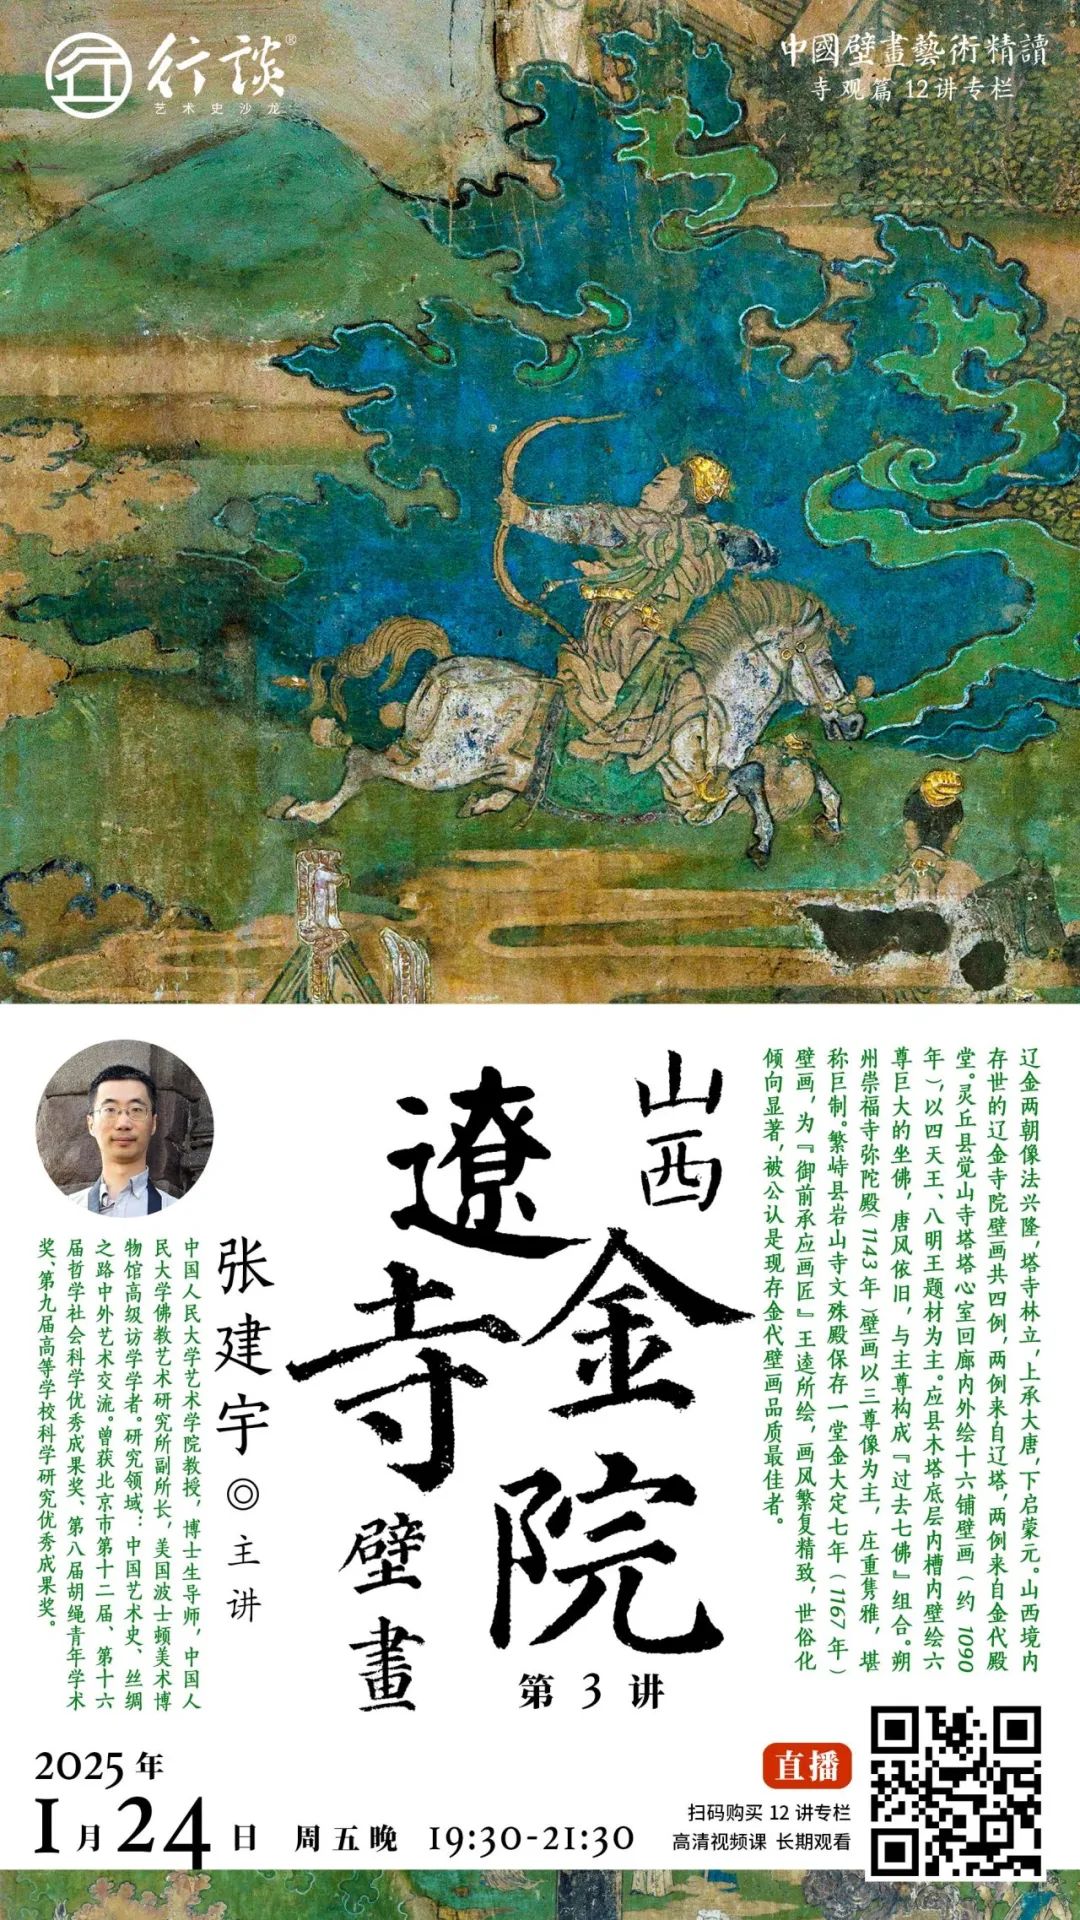 行談®
艺术史沙龙
中國壁畫藝術精讀
寺观篇 12讲专栏
辽金两朝像法兴隆，塔寺林立，上承大唐，下启蒙元。山西境内
存世的辽金寺院壁画共四例，两例来自辽塔，两例来自金代殿
堂。灵丘县觉山寺塔塔心室回廊内外绘十六铺壁画（约 1090
年），以四天王、八明王题材为主。应县木塔底层内槽内壁绘六
尊巨大的坐佛，唐风依旧，与主尊构成『过去七佛』组合。朔
州崇福寺弥陀殿（1143 年）壁画以三尊像为主，庄重隽雅，堪
称巨制。繁峙县岩山寺文殊殿保存一堂金大定七年（1167 年）
壁画，为『御前承应画匠』王逵所绘，画风繁复精致，世俗化
倾向显著，被公认是现存金代壁画品质最佳者。
山西
遼金寺院
壁畫
第 3 讲
张建宇◎主讲
中国人民大学艺术学院教授，博士生导师，中国人
民大学佛教艺术研究所副所长，美国波士顿美术博
物馆高级访学学者。研究领域：中国艺术史、丝绸
之路中外艺术交流。曾获北京市第十二届、第十六
届哲学社会科学优秀成果奖、第八届胡绳青年学术
奖、第九届高等学校科学研究优秀成果奖。
2025 年
1月24日 周五晚 19:30-21:30
直播
扫码购买 12 讲专栏
高清视频课 长期观看